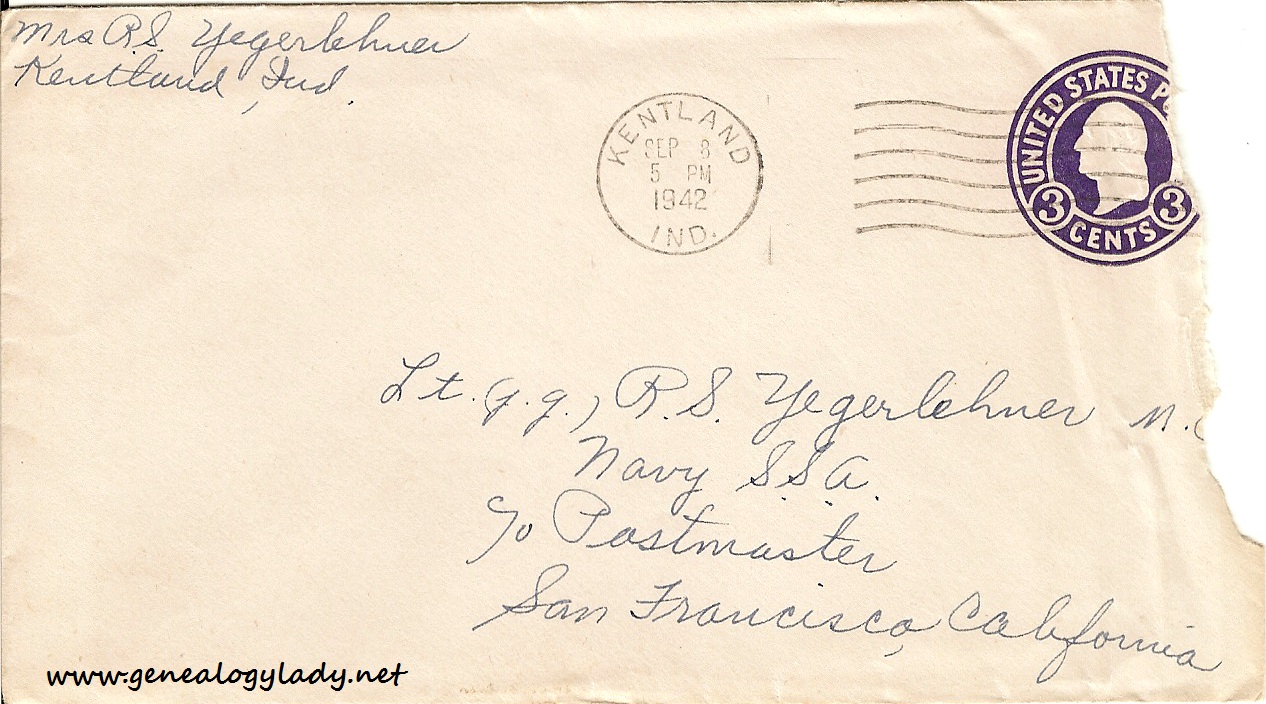 Mrs R.S. Yegerlehner
Kentland, Ind.
KENTLAND
SEP 8
5 PM
1942
IND.
UNITED STATES P
3 CENTS 3
Lt. (j.g.) R.S. Yegerlehner M.C
Navy S.S.A.
c/o Postmaster
San Francisco, California
www.genealogylady.net